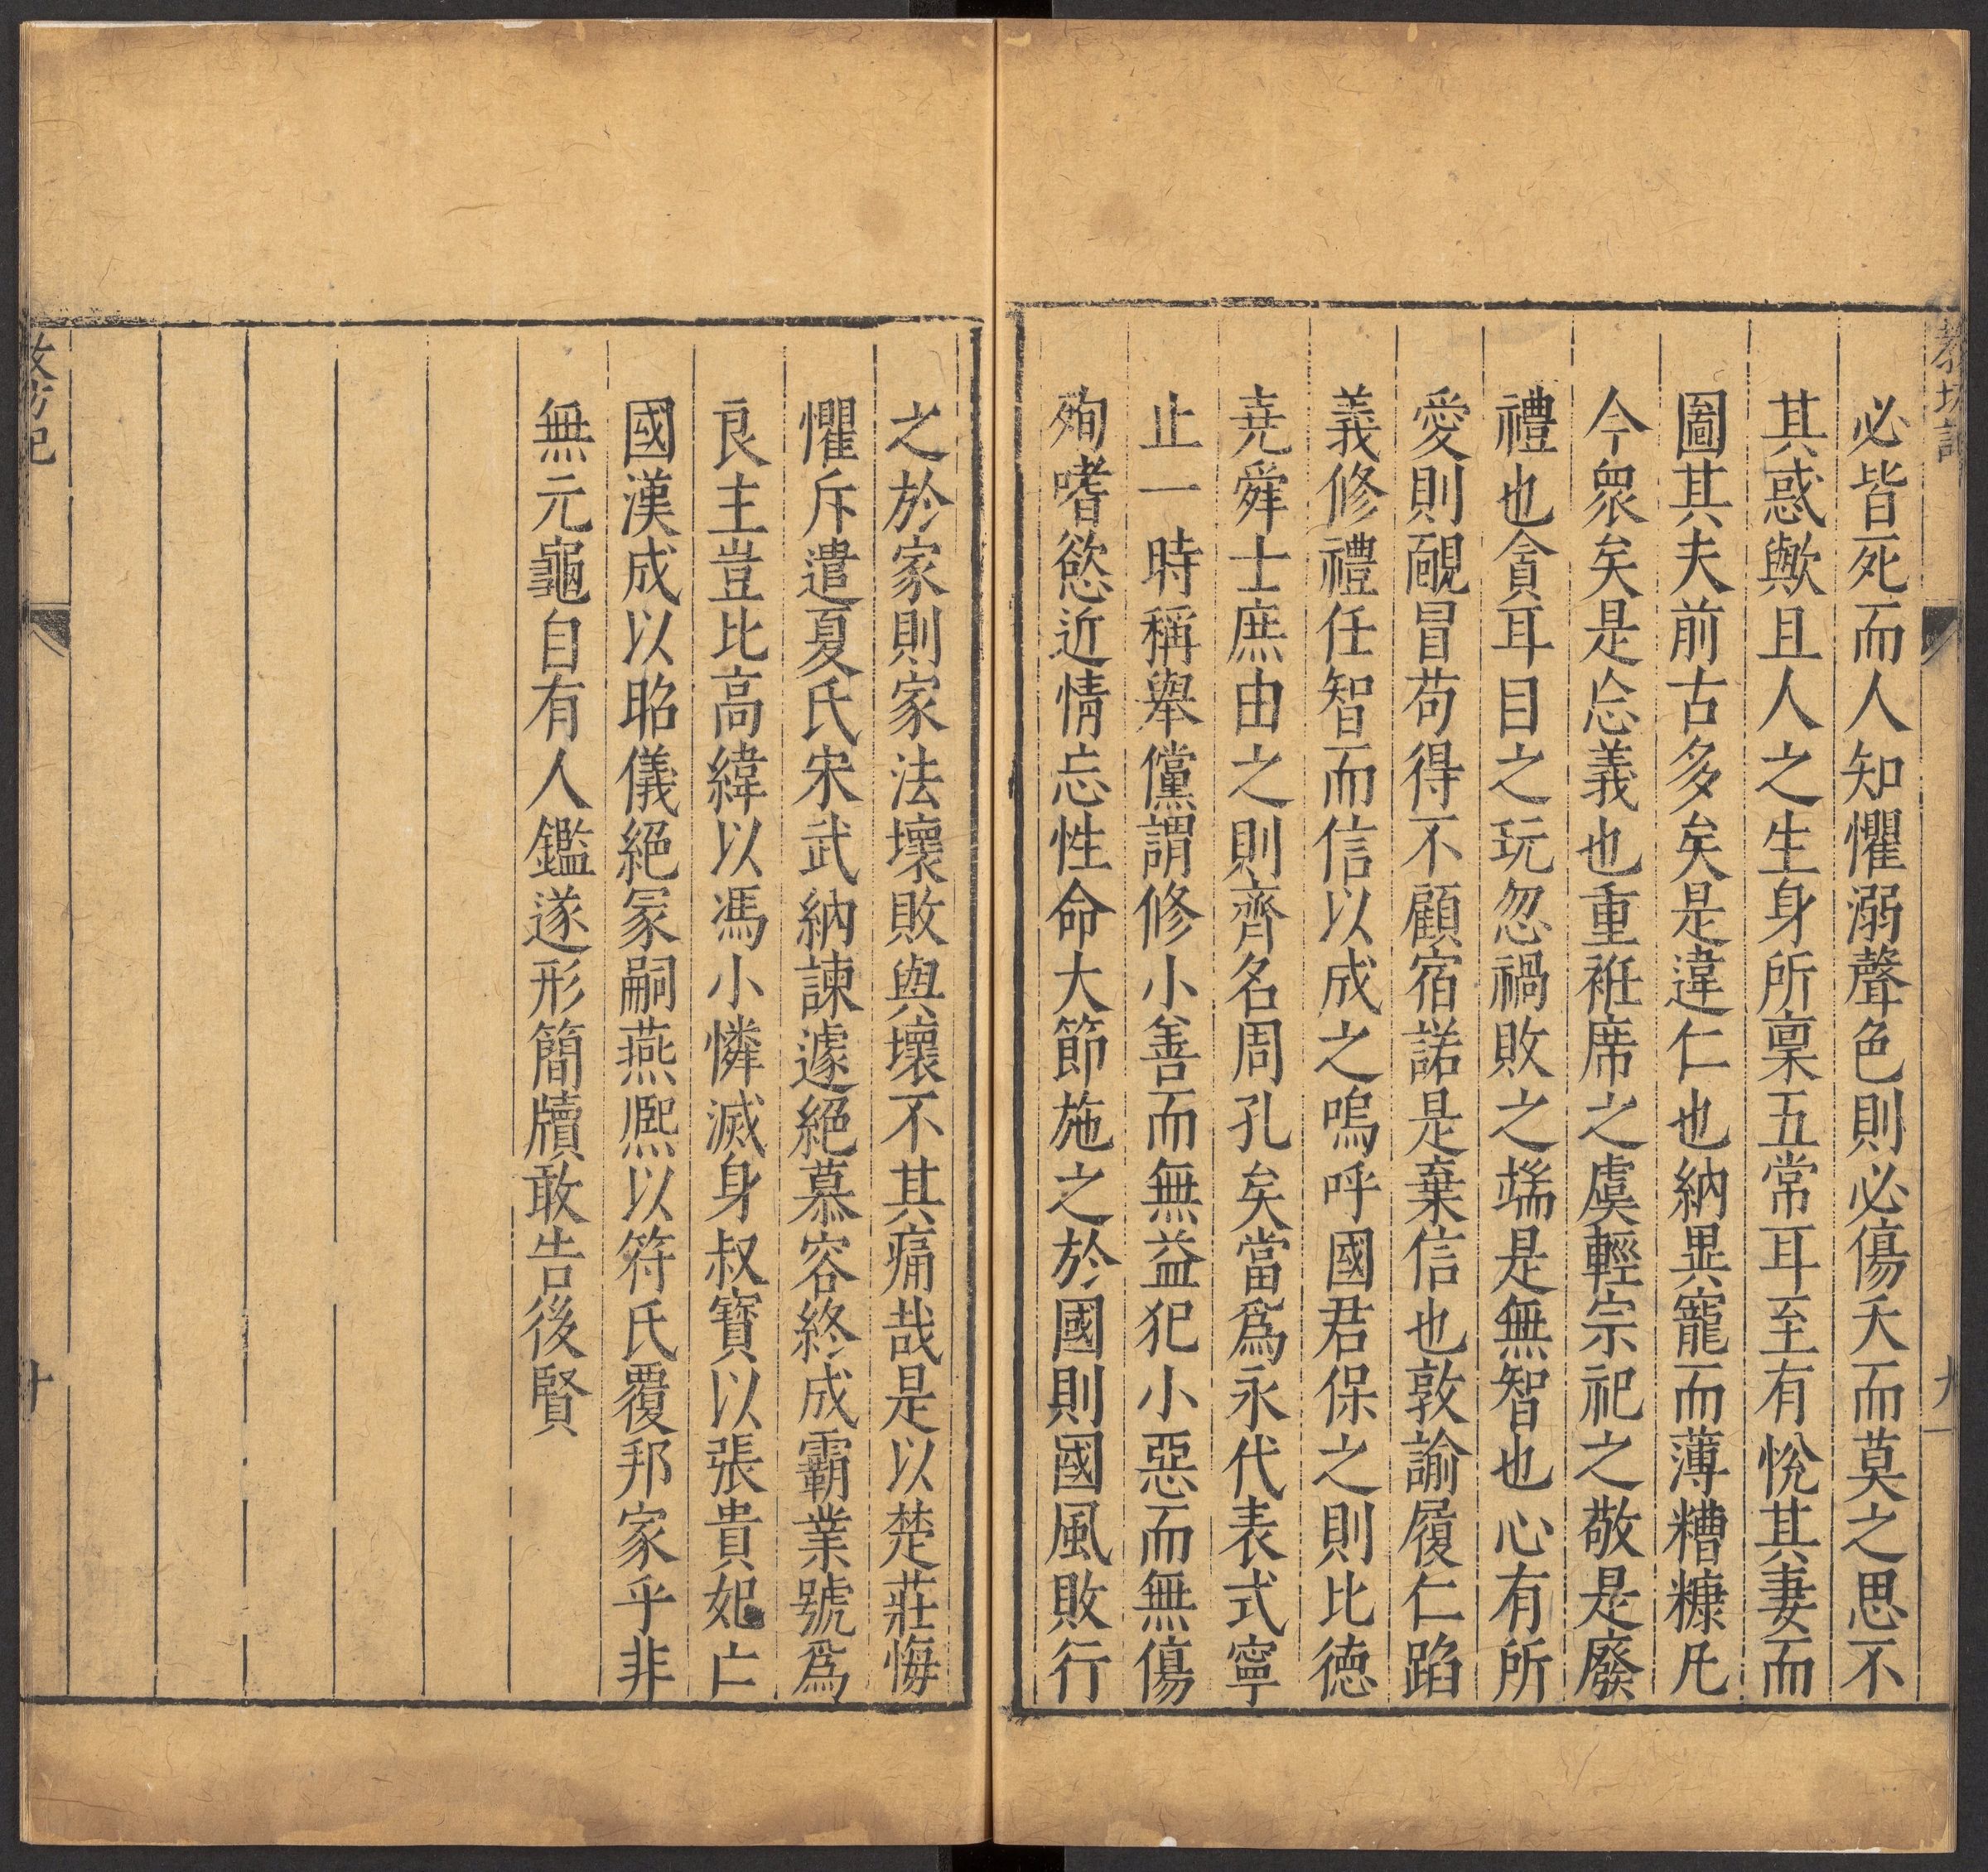 教坊記
九
必皆死而人知懼溺聲色則必傷夭而莫之思不
其惑歟且人之生身所稟五常耳至有悅其妻而
圖其夫前古多矣是違仁也納異寵而薄糟糠凡
今衆矣是忘義也重袵席之虞輕宗祀之敬是廢
禮也貪耳目之玩忽禍敗之端是無智也心有所
愛則靦冒苟得不顧宿諾是棄信也敦諭履仁蹈
義修禮任智而信以成之嗚呼國君保之則比德
堯舜士庶由之則齊名周孔矣當爲永代表式寧
止一時稱舉儻謂修小善而無益犯小惡而無傷
殉嗜慾近情忘性命大節施之於國則國風敗行
之於家則家法壞敗與壞不其痛哉是以楚莊悔
懼斥遣夏氏宋武納諫遽絕慕容終成霸業號爲
良主豈比高緯以馮小憐滅身叔寶以張貴妃亡
國漢成以昭儀絕冢嗣燕熙以符氏覆邦家乎非
無元龜自有人鑑遂形簡牘敢告後賢
教坊記
十